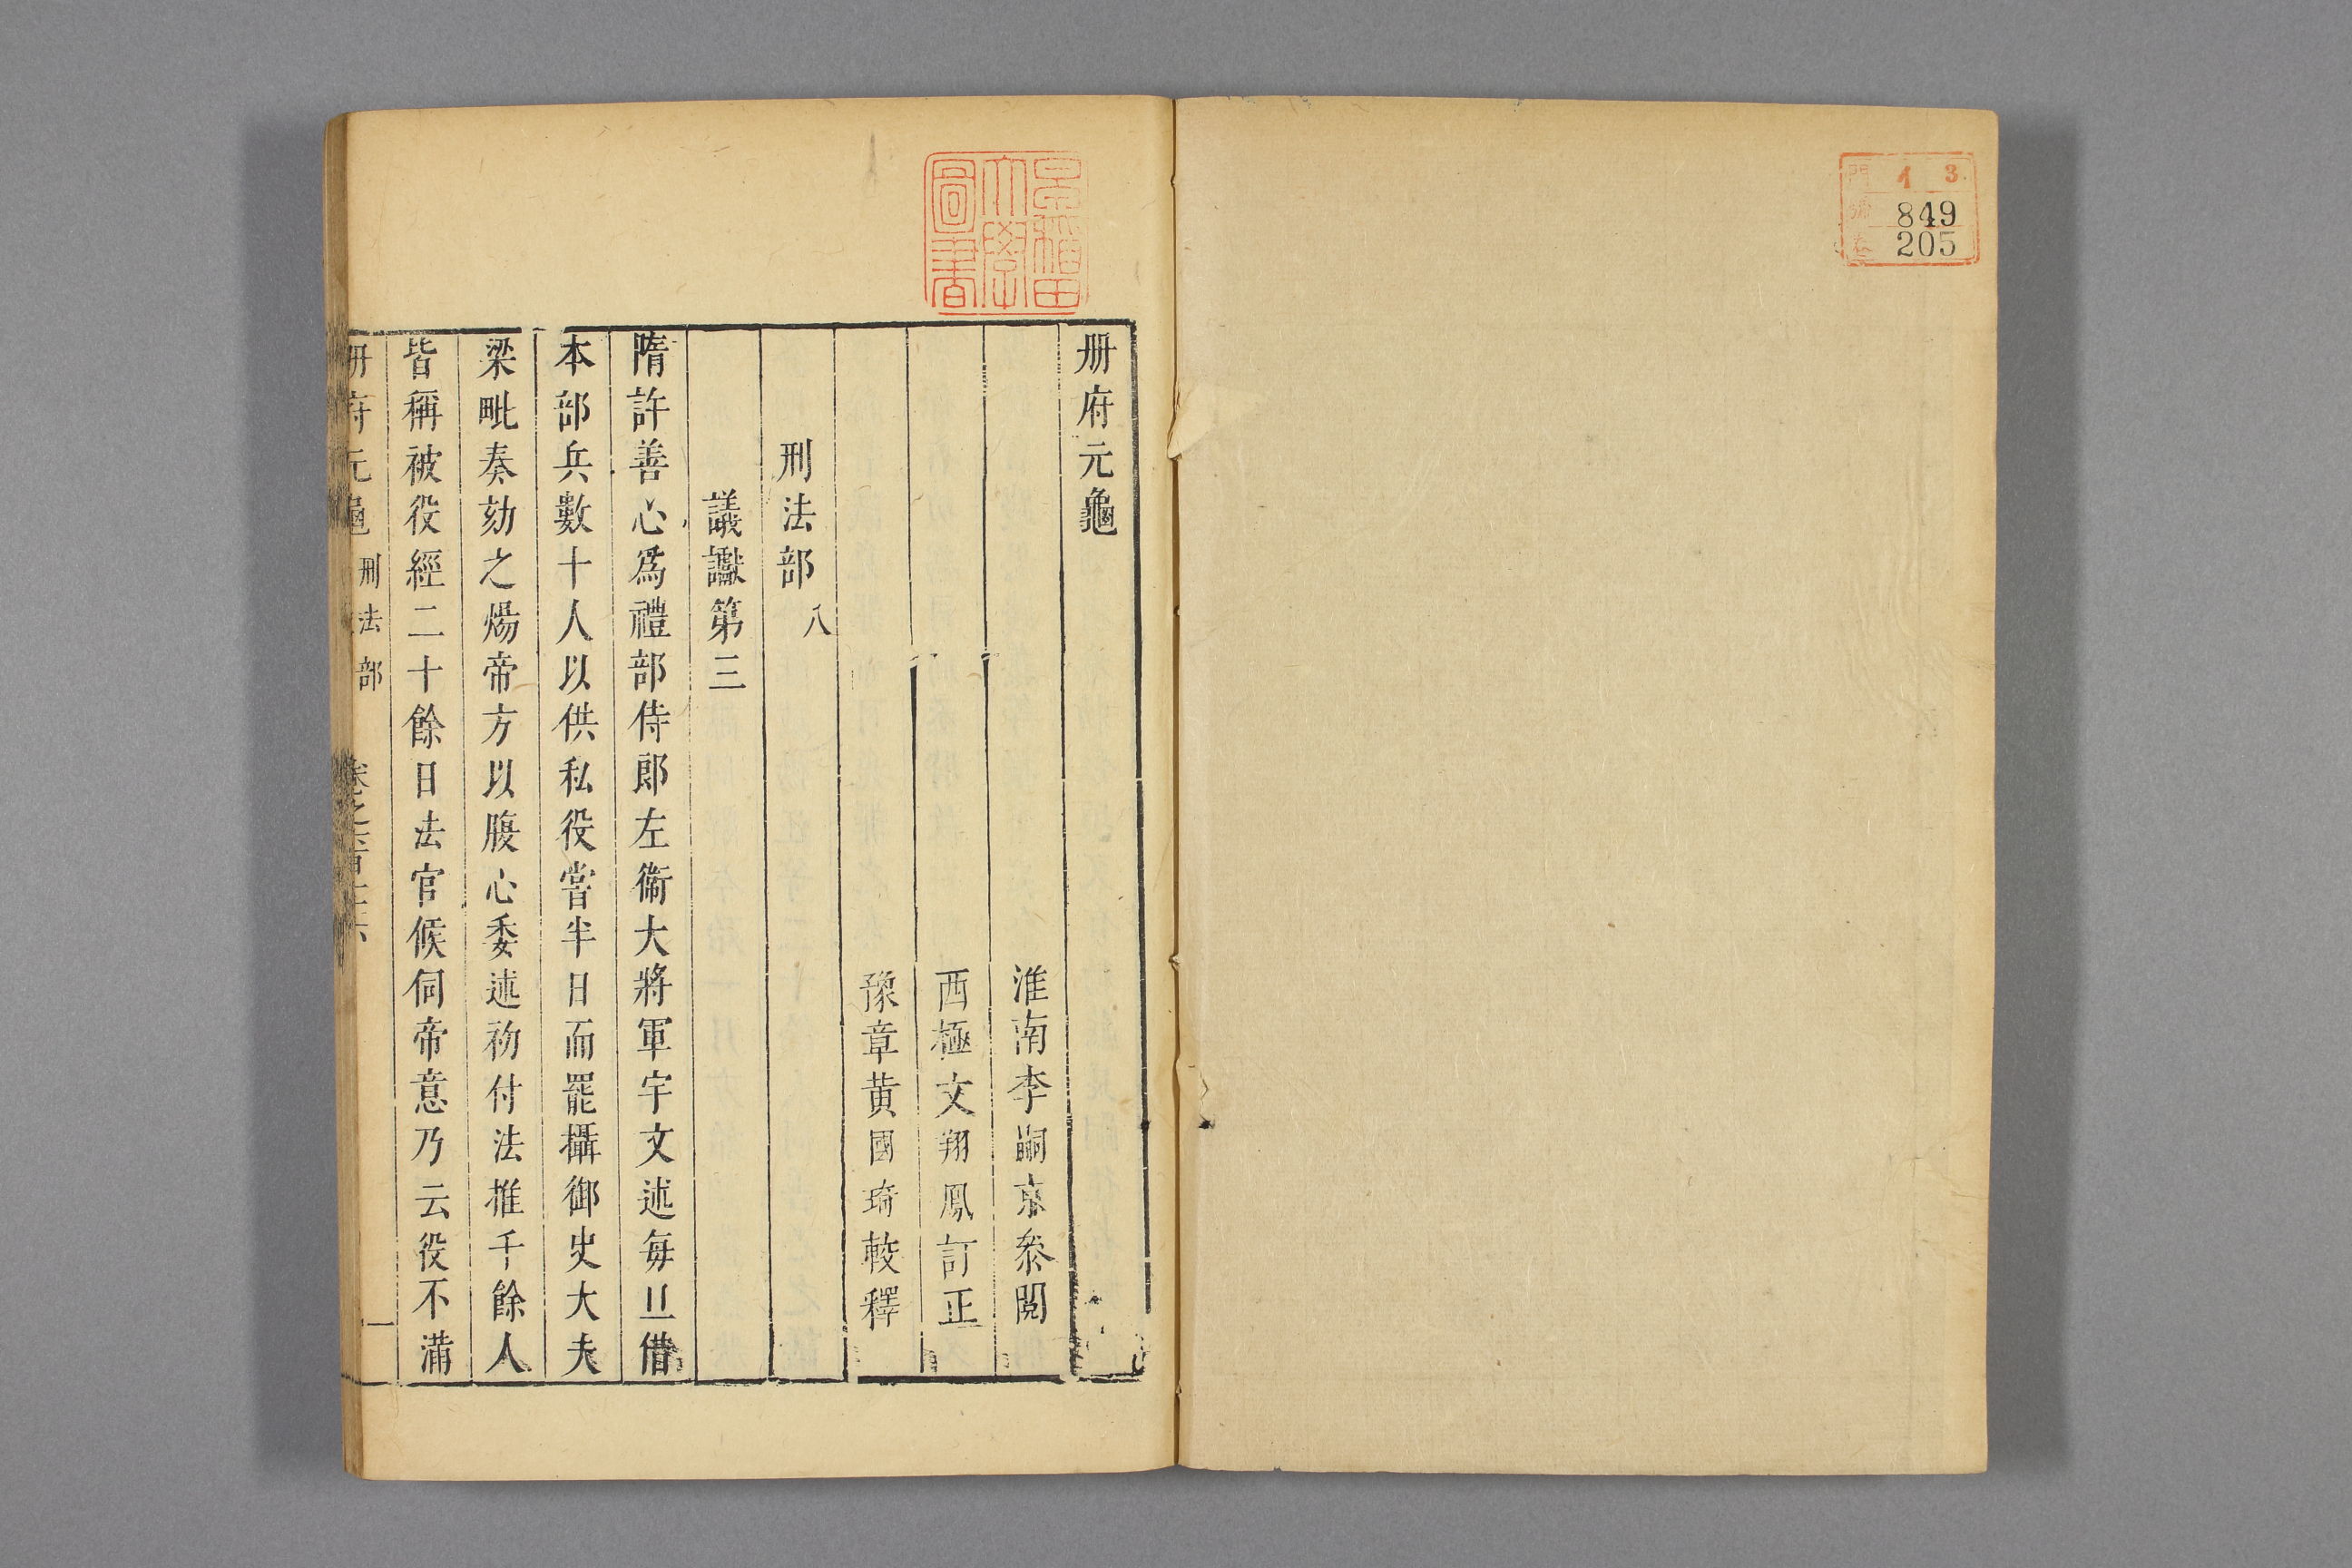 門 イ 3
號 849
卷 205
早稲田大學圖書
册府元龜
淮南李嗣京叅閲
西極文翔鳳訂正
豫章黄國琦較釋
刑法部 八
議讞第三
隋許善心爲禮部侍郎左衞大將軍宇文述每旦借
本部兵數十人以供私役嘗半日而罷攝御史大夫
梁毗奏劾之煬帝方以腹心委述初付法推千餘人
皆稱被役經二十餘日法官候伺帝意乃云役不滿
册府元龜 刑法部 卷之六百十六 一